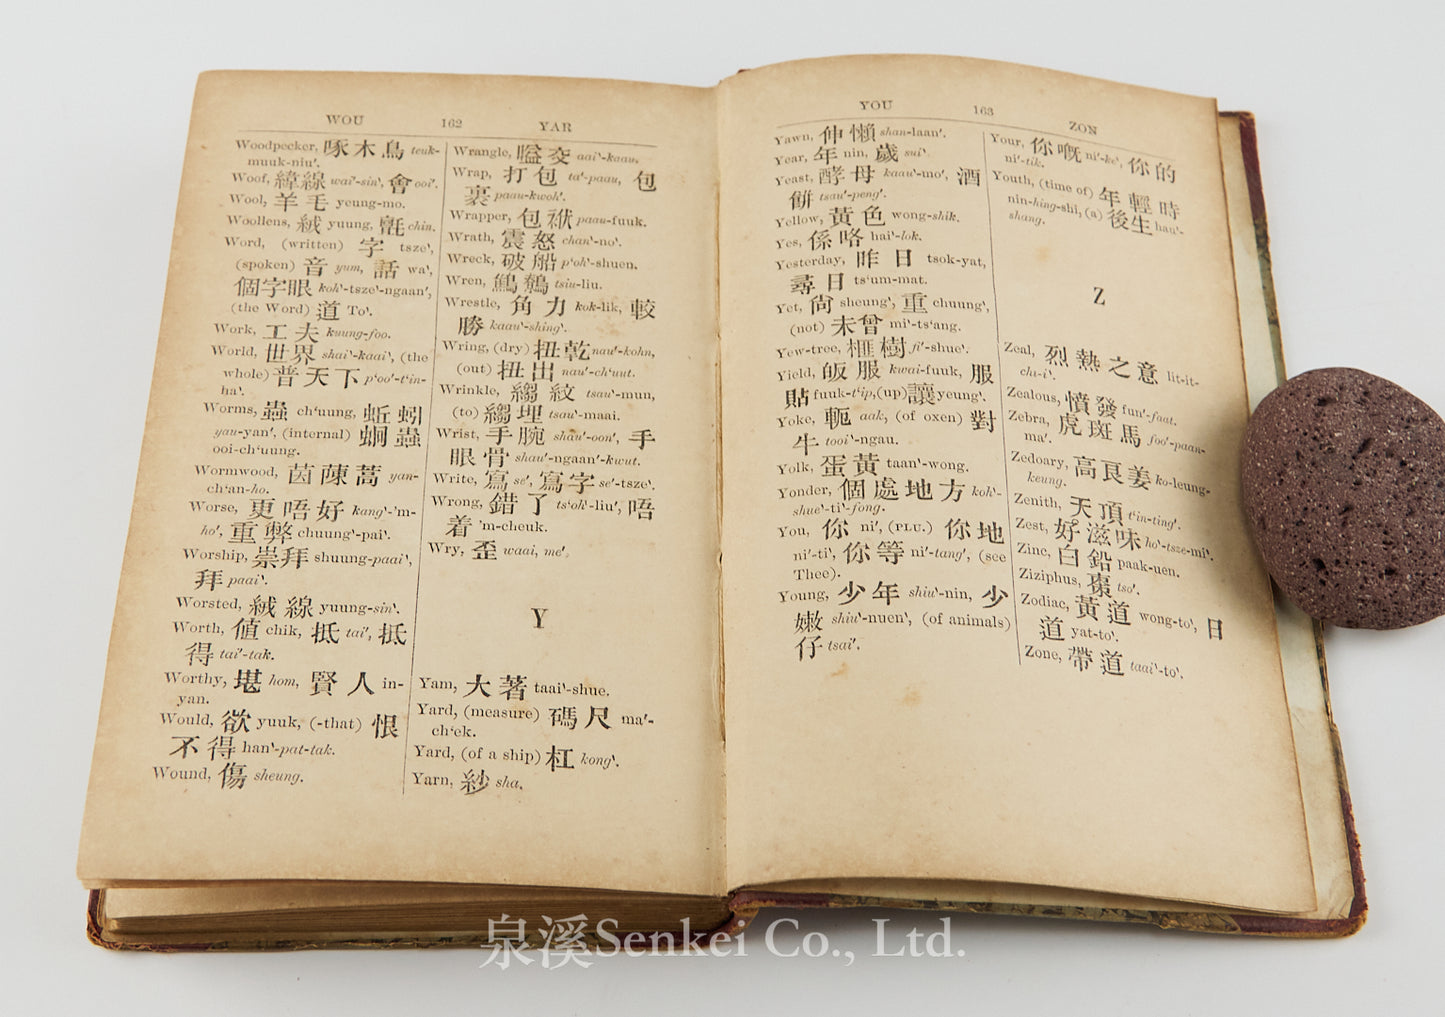 WOU 162 YAR
Woodpecker, 啄木鳥 teuk-
muuk-niu'.
Woof, 緯線 wai'-sin', 會 ooi'.
Wool, 羊毛 yeung-mo.
Woollens, 絨 yuung, 氈 chin.
Word, (written) 字 tsze',
(spoken) 音 yum, 話 wa',
個字眼 koh'-tsze'-ngaan',
(the Word) 道 To'.
Work, 工夫 kuung-foo.
World, 世界 shai'-kaai', (the
whole) 普天下 p'oo'-t'in-
ha'.
Worms, 蟲 ch'uung, 蚯蚓
yau-yan', (internal) 蛔蟲
ooi-ch'uung.
Wormwood, 茵蔯蒿 yan-
ch'an-ho.
Worse, 更唔好 kang'-'m-
ho', 重弊 chuung'-pai'.
Worship, 崇拜 shuung-paai',
拜 paai'.
Worsted, 絨線 yuung-sin'.
Worth, 値 chik, 抵 tai', 抵
得 tai'-tak.
Worthy, 堪 hom, 賢人 in-
yan.
Would, 欲 yuuk, (-that) 恨
不得 han'-pat-tak.
Wound, 傷 sheung.
Wrangle, 嗌交 aai'-kaau.
Wrap, 打包 ta'-paau, 包
裹 paau-kwoh'.
Wrapper, 包袱 paau-fuuk.
Wrath, 震怒 chan'-no'.
Wreck, 破船 p'oh'-shuen.
Wren, 鷦鷯 tsiu-liu.
Wrestle, 角力 kok-lik, 較
勝 kaau'-shing'.
Wring, (dry) 扭乾 nau'-kohn,
(out) 扭出 nau'-ch'uut.
Wrinkle, 縐紋 tsau'-mun,
(to) 縐埋 tsau'-maai.
Wrist, 手腕 shau'-oon', 手
眼骨 shau'-ngaan'-kwut.
Write, 寫 se', 寫字 se'-tsze'.
Wrong, 錯了 ts'oh'-liu', 唔
着 'm-cheuk.
Wry, 歪 waai, me'.
Y
Yam, 大著 taai'-shue.
Yard, (measure) 碼尺 ma'-
ch'ek.
Yard, (of a ship) 杠 kong'.
Yarn, 紗 sha.
YOU 163 ZON
Yawn, 伸懶 shan-laan'.
Year, 年 nin, 歲 sui'.
Yeast, 酵母 kaau'-mo', 酒
餅 tsau'-peng'.
Yellow, 黃色 wong-shik.
Yes, 係咯 hai'-lok.
Yesterday, 昨日 tsok-yat,
尋日 ts'um-mat.
Yet, 尙 sheung', 重 chuung',
(not) 未曾 mi'-ts'ang.
Yew-tree, 榧樹 fi'-shue'.
Yield, 皈服 kwai-fuuk, 服
貼 fuuk-t'ip, (up) 讓 yeung'.
Yoke, 軛 aak, (of oxen) 對
牛 tooi'-ngau.
Yolk, 蛋黃 taan'-wong.
Yonder, 個處地方 koh'-
shue'-ti'-fong.
You, 你 ni', (PLU.) 你地
ni'-ti', 你等 ni'-tang', (see
Thee).
Young, 少年 shiu'-nin, 少
嫩 shiu'-nuen', (of animals)
仔 tsai'.
Your, 你嘅 ni'-ke', 你的
ni'-tik.
Youth, (time of) 年輕時
nin-hing-shi, (a) 後生 hau'-
shang.
Z
Zeal, 烈熱之意 lit-it-
chi-i'.
Zealous, 憤發 fun'-faat.
Zebra, 虎斑馬 foo'-paan-
ma'.
Zedoary, 高良姜 ko-leung-
keung.
Zenith, 天頂 t'in-ting'.
Zest, 好滋味 ho'-tsze-mi'.
Zinc, 白鉛 paak-uen.
Ziziphus, 棗 tso'.
Zodiac, 黃道 wong-to', 日
道 yat-to'.
Zone, 帶道 taai'-to'.
泉溪Senkei Co., Ltd.